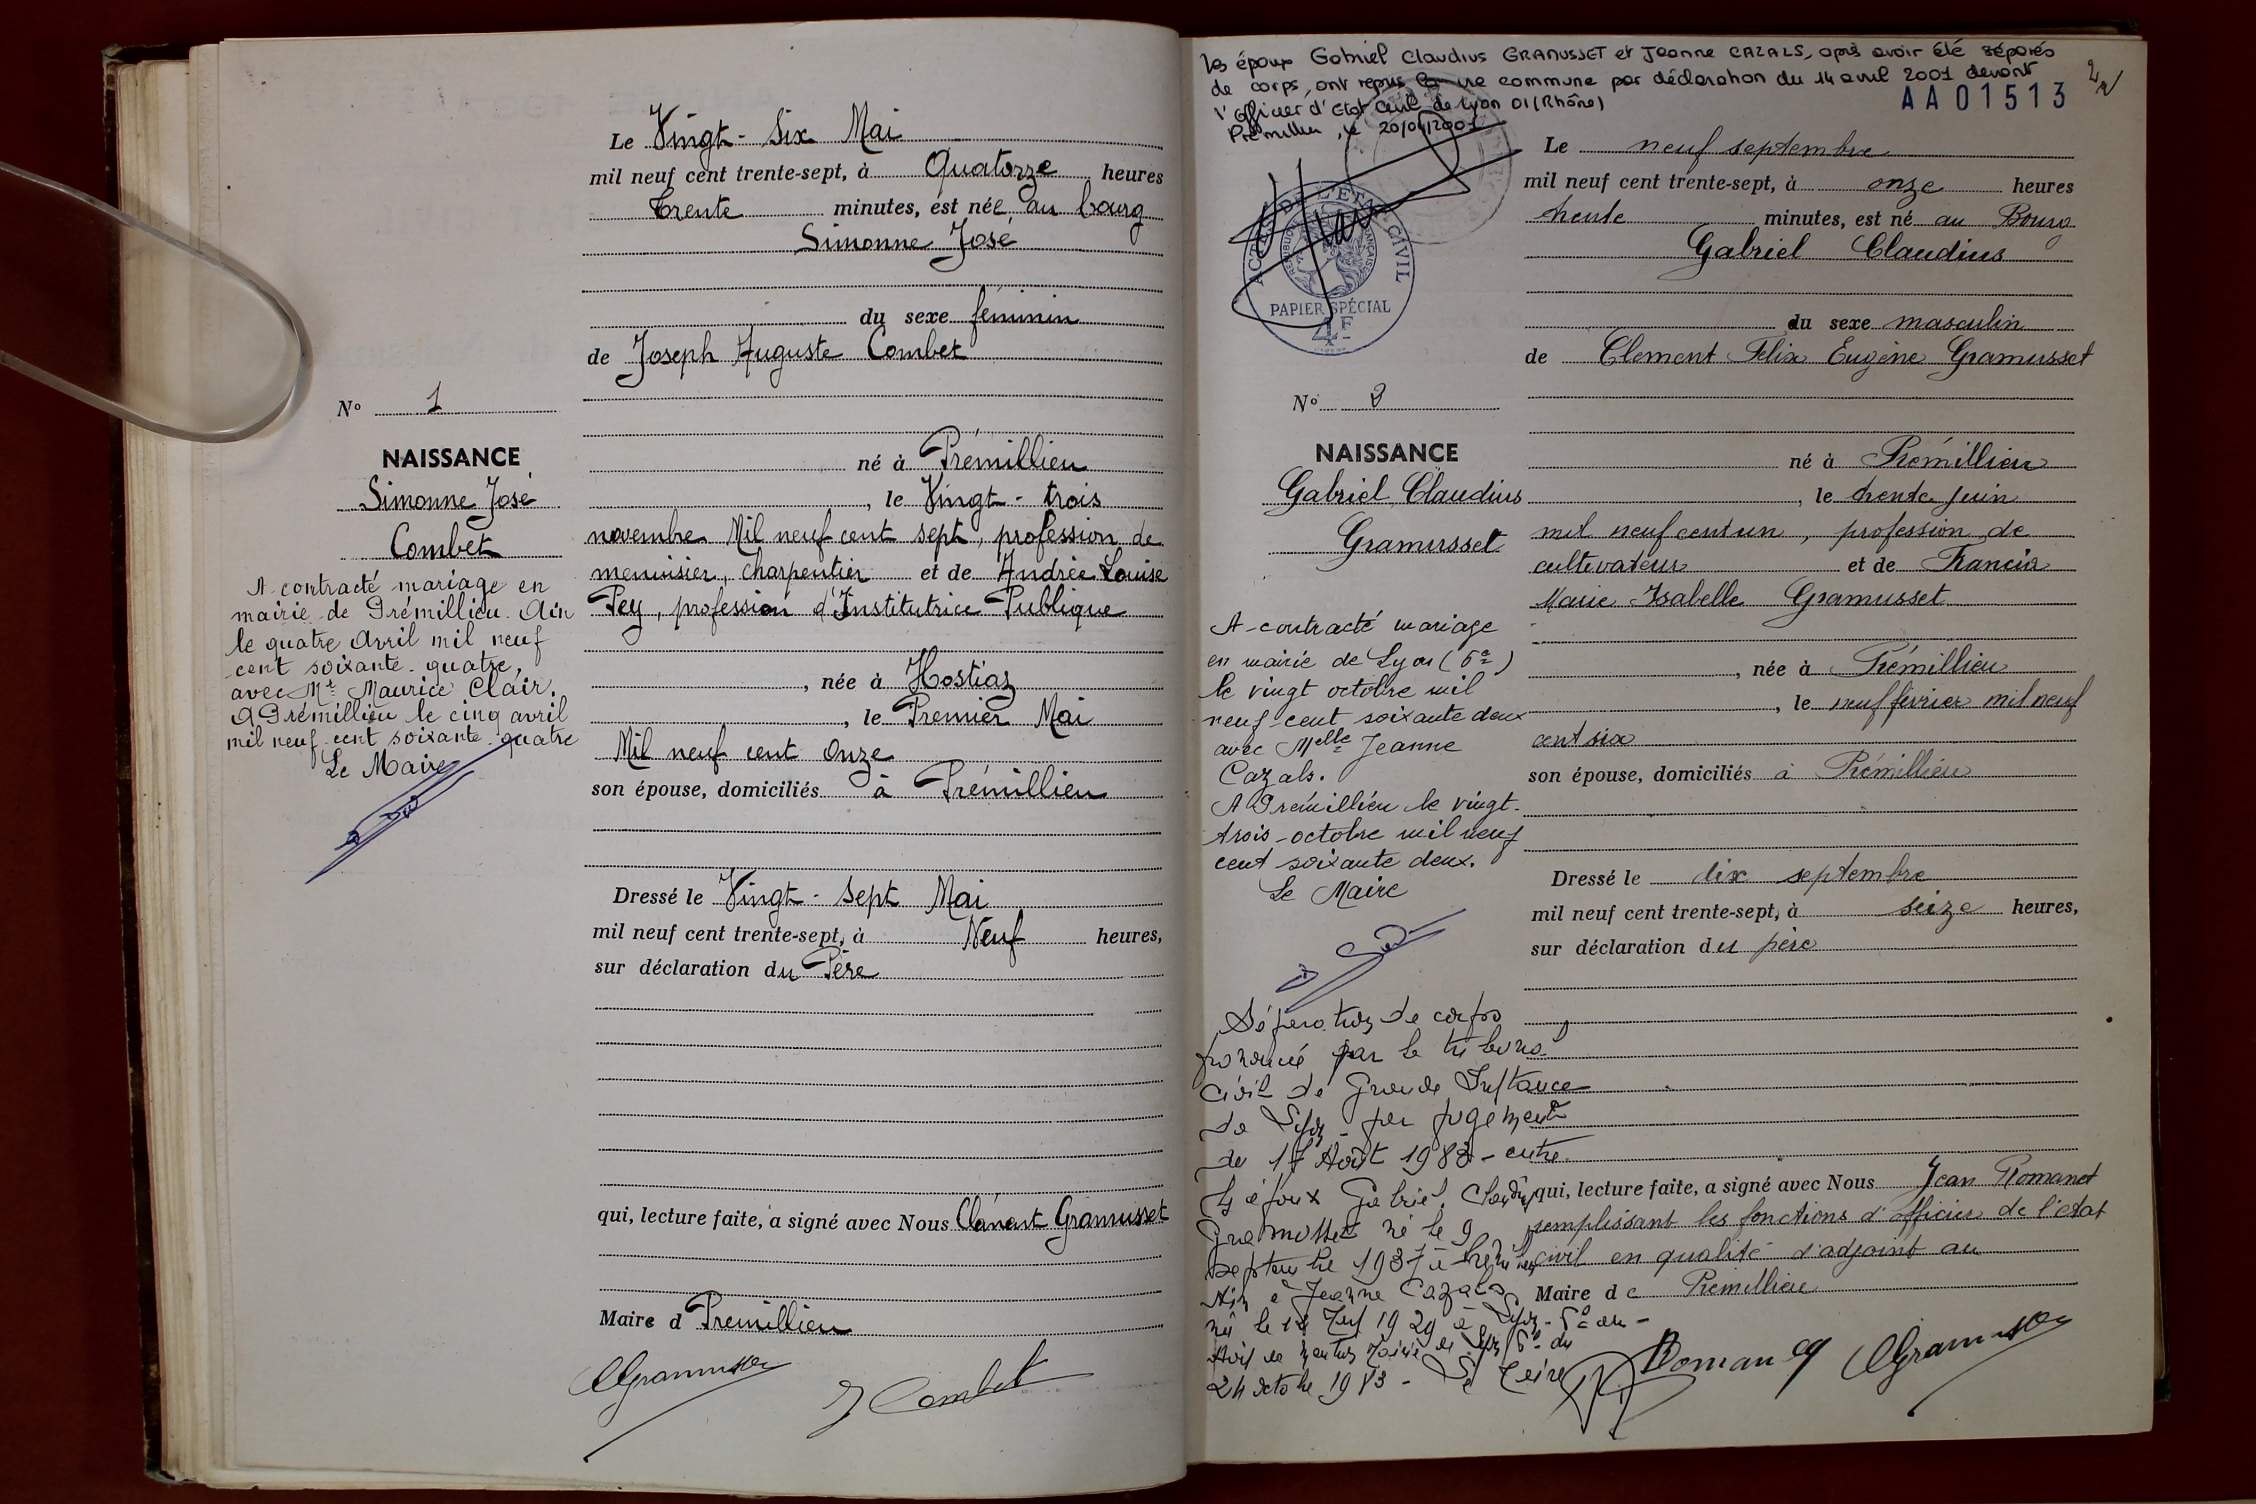 Le Vingt-Six Mai
mil neuf cent trente-sept, à Quatorze heures
Trente minutes, est née au bourg
Simonne José
du sexe féminin
de Joseph Auguste Combet
né à Prémillieu
, le Vingt-trois
novembre Mil neuf cent sept, profession de
menuisier, charpentier et de Andrée Louise
Pey, profession d'Institutrice Publique
, née à Hostiaz
, le Premier Mai
Mil neuf cent Onze
son épouse, domiciliés à Prémillieu
Dressé le Vingt-Sept Mai
mil neuf cent trente-sept, à Neuf heures,
sur déclaration du Père
qui, lecture faite, a signé avec Nous Clément Gramusset
Maire d Premillieu
CGramusset
J Combet
No 1
NAISSANCE
Simonne José
Combet
A contracté mariage en
mairie de Prémillieu. Ain
le quatre Avril mil neuf
cent soixante-quatre,
avec Mr Maurice Clair.
A Prémillieu le cinq avril
mil neuf cent soixante-quatre
Le Maire
les époux Gabriel Claudius GRAMUSSET et Jeanne CAZALS, après avoir été séparés
de corps, ont repris la vie commune par déclaration du 14 avril 2001 devant
l'officier d'Etat Civil de Lyon 01 (Rhône)
Prémillieu, le 20/04/2001
AA01513
2
ACTES DE L'ETAT CIVIL
PAPIER SPÉCIAL
4F
Le neuf septembre
mil neuf cent trente-sept, à onze heures
trente minutes, est né au Bourg
Gabriel Claudius
du sexe masculin
de Clement Felix Eugène Gramusset
né à Prémillieu
, le trente Juin
mil neuf cent un, profession de
cultivateur et de Francia
Marie Isabelle Gramusset
, née à Prémillieu
, le neuf février mil neuf
cent six
son épouse, domiciliés à Prémillieu
Dressé le dix septembre
mil neuf cent trente-sept, à seize heures,
sur déclaration du père
qui, lecture faite, a signé avec Nous Jean Romanet
remplissant les fonctions d'officier de l'état
civil en qualité d'adjoint au
Maire de Prémillieu
Romanet
CGramusset
No 2
NAISSANCE
Gabriel Claudius
Gramusset
A contracté mariage
en mairie de Lyon (5e)
le vingt octobre mil
neuf-cent soixante deux
avec Melle Jeanne
Cazals.
A Prémillieu le vingt-
trois-octobre mil neuf
cent soixante deux.
Le Maire
Séparation de corps
prononcé par le tribunal
Civil de Grande Instance
de Lyon par jugement
du 17 Août 1983 - entre
les époux Gabriel Claudius
Gramusset né le 9
septembre 1937 à Prémillieu
Ain à Jeanne Cazals
née le 1929 à Lyon - 5e arr -
Avis de mention Mairie de Lyon 5e du
24 Octobre 1983 - Le Maire